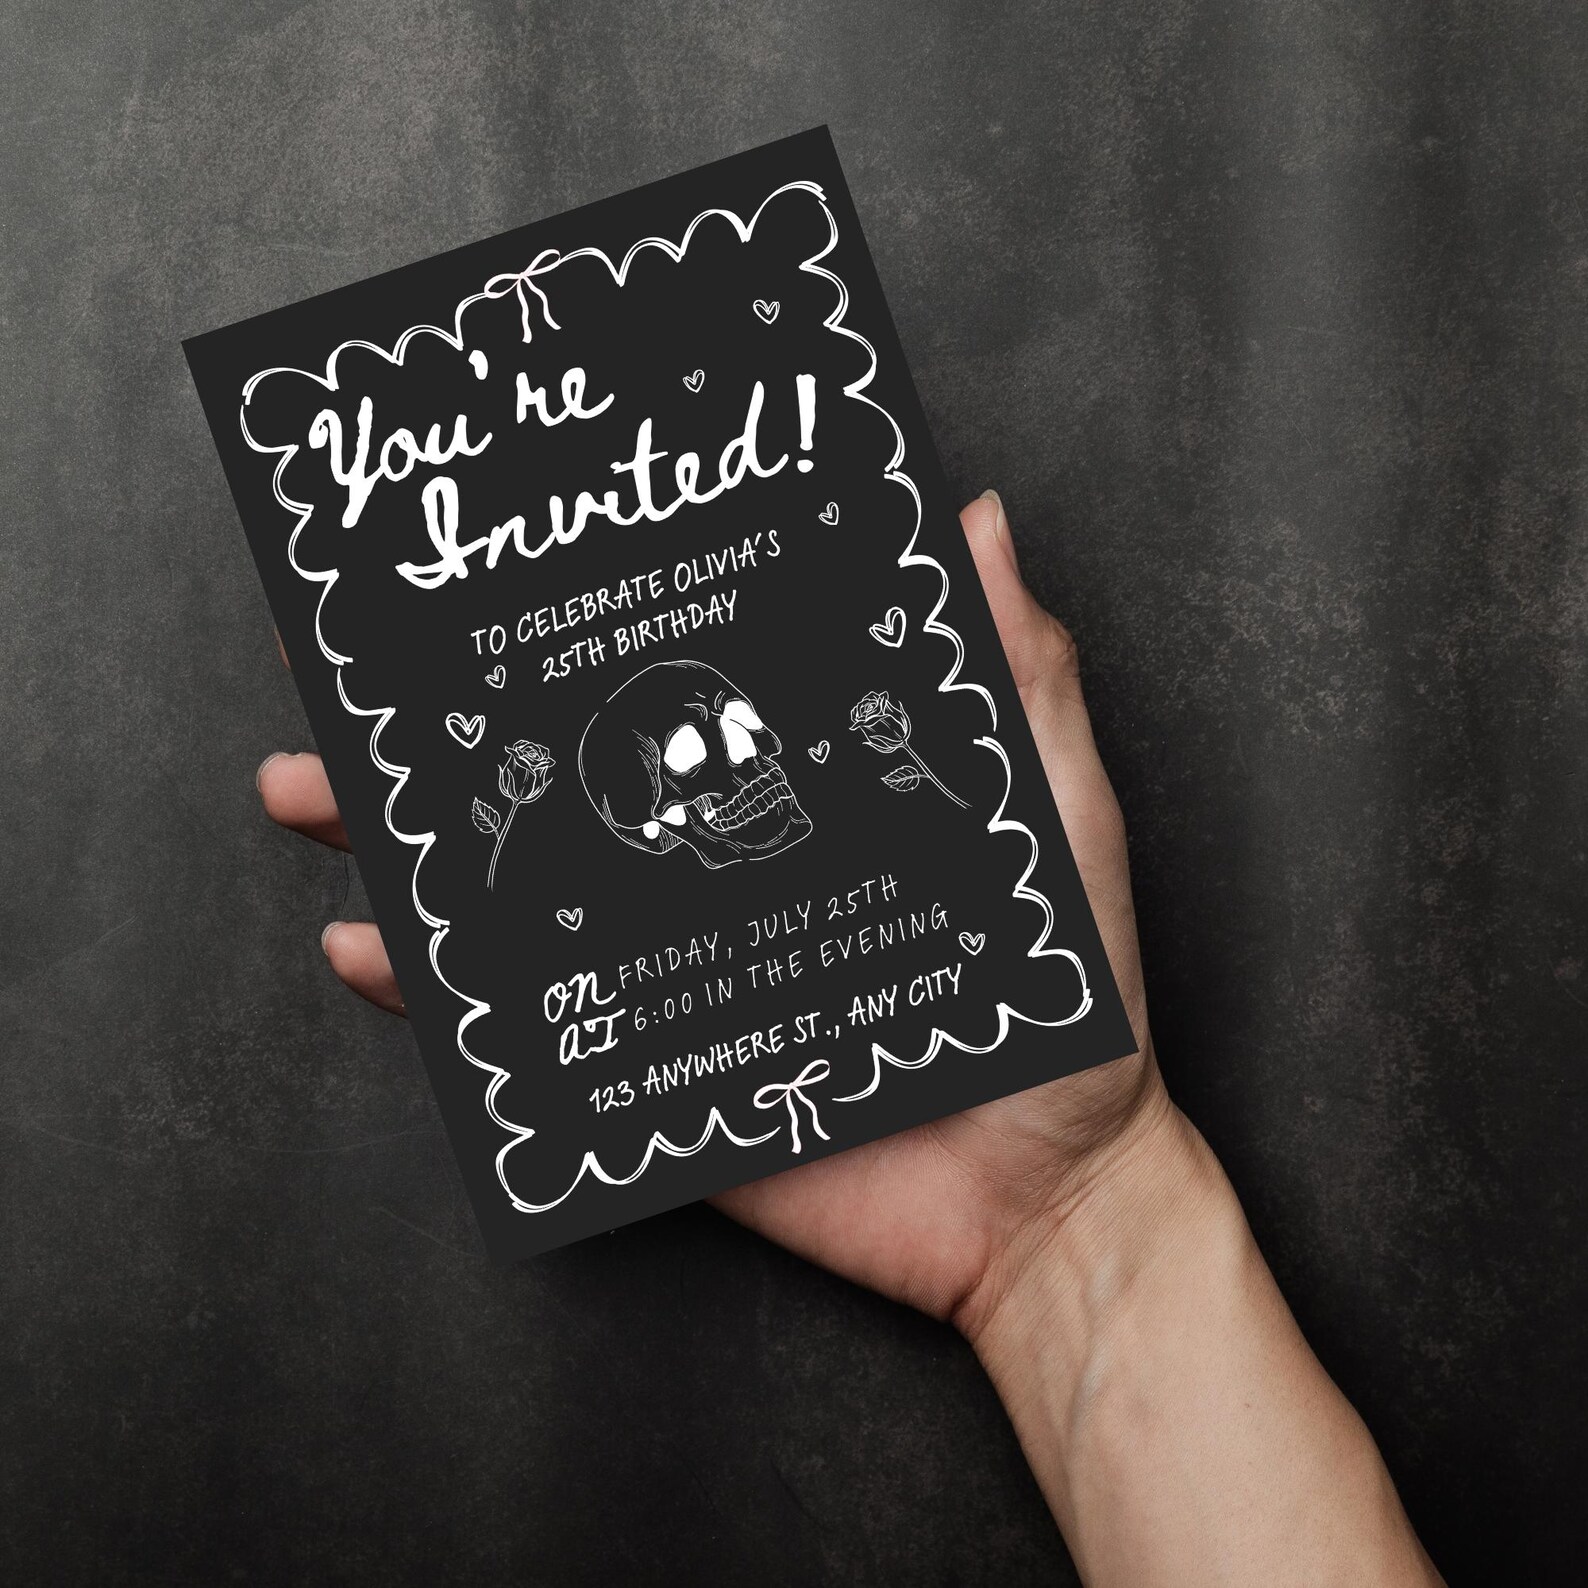 You're
Invited!
TO CELEBRATE OLIVIA'S
25TH BIRTHDAY
ON FRIDAY, JULY 25TH
AT 6:00 IN THE EVENING
123 ANYWHERE ST., ANY CITY